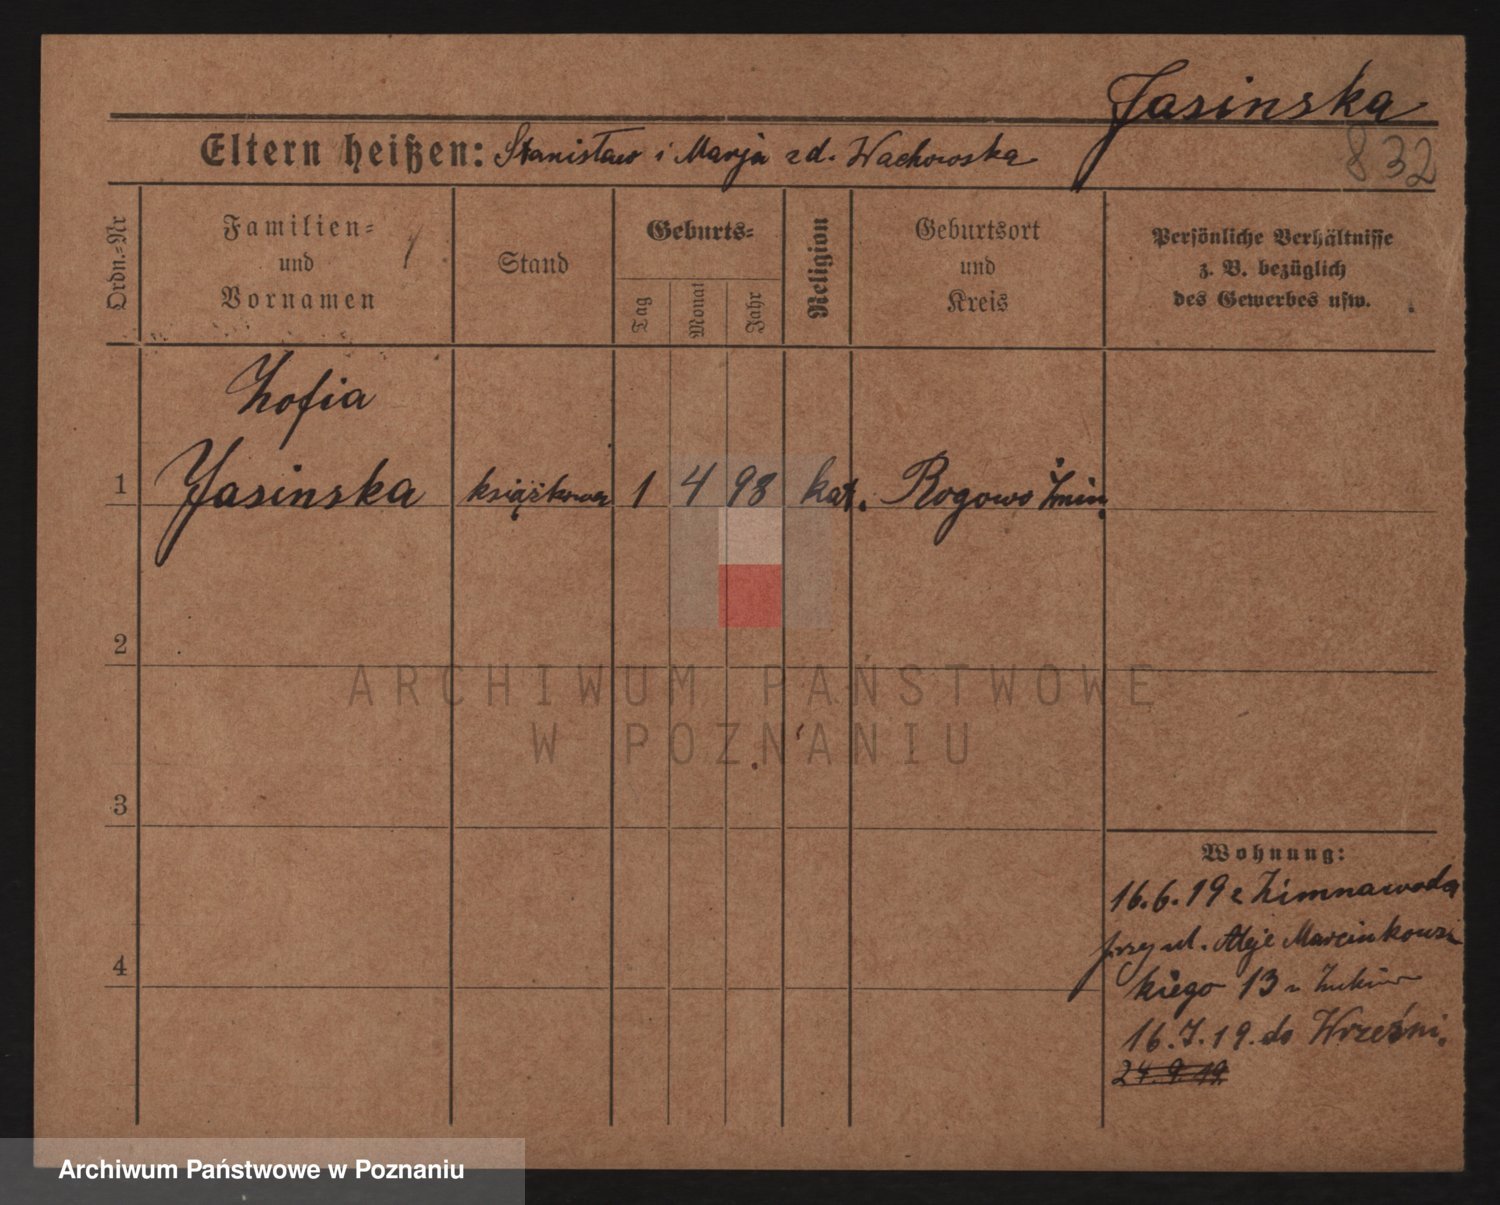 Jasinska
832
Eltern heißen: Stanisław i Marja zd. Wachowska
Ordn.-Nr
Familien-
und
Vornamen
Stand
Geburts-
Tag
Monat
Jahr
Religion
Geburtsort
und
Kreis
Persönliche Verhältnisse
z. B. bezüglich
des Gewerbes usw.
Zofia
1 Jasinska książkowa 1 4 98 kat. Rogowo Żnin
2
3
4
Wohnung:
16.6.19 z Zimnawoda
przy ul. Aleje Marcinkows
kiego 13 u
16.7.19. do Wrześni.
24.9.19
ARCHIWUM PAŃSTWOWE
W POZNANIU
Archiwum Państwowe w Poznaniu